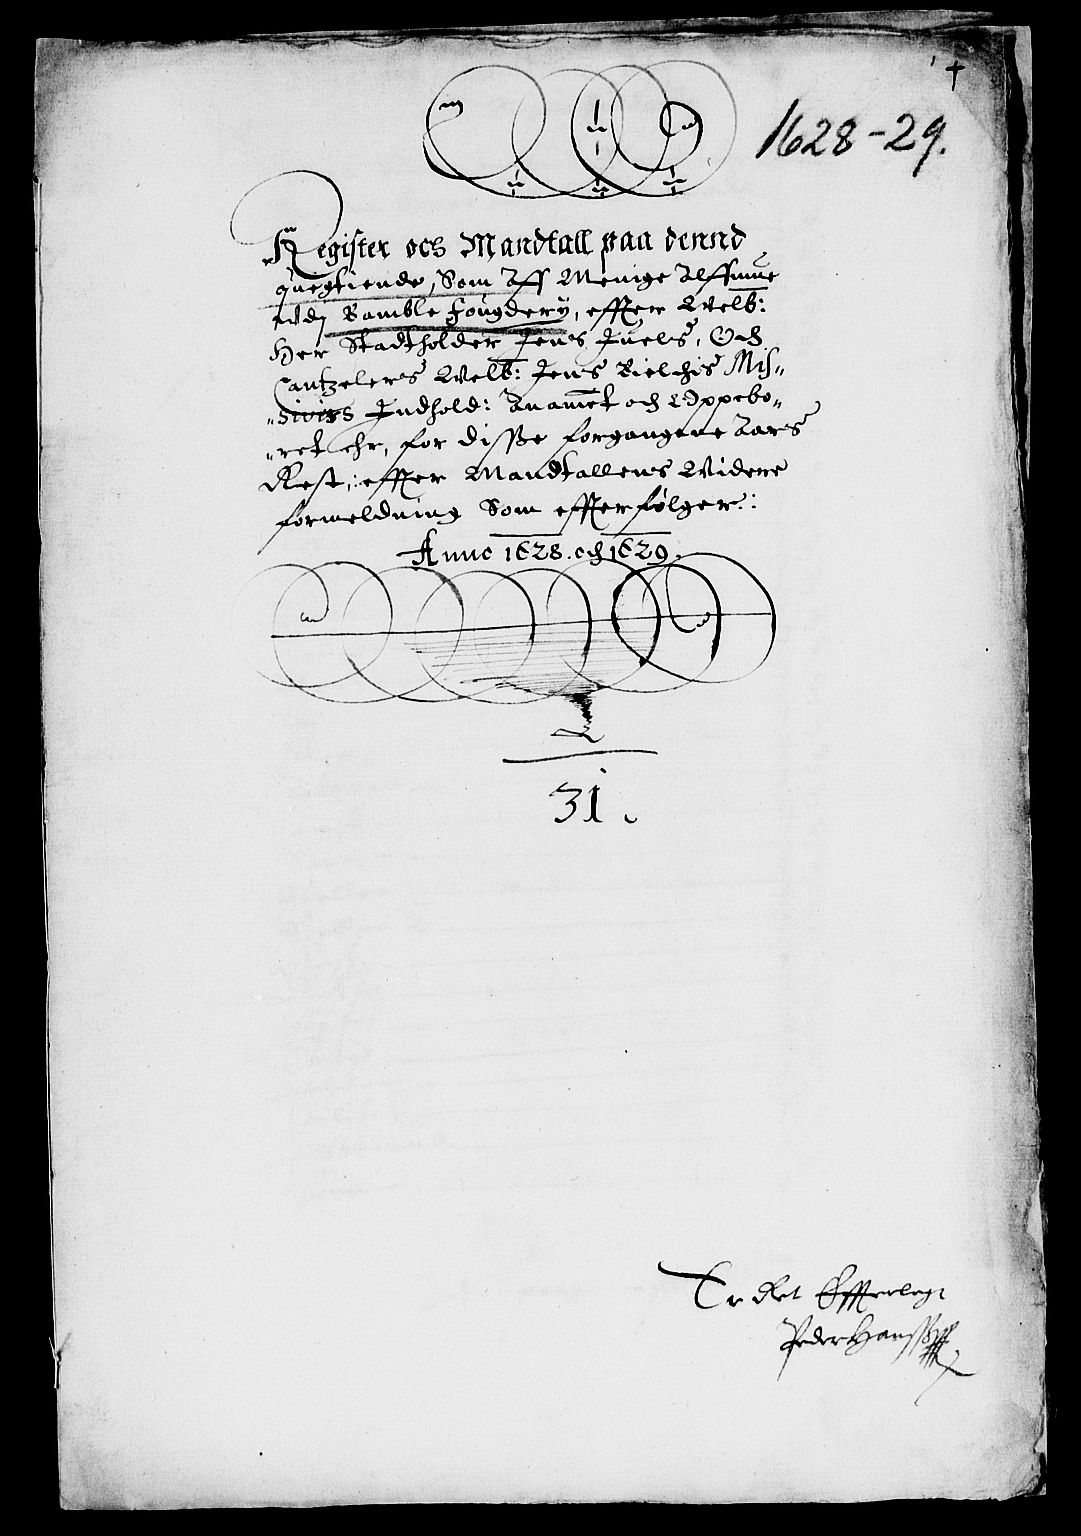 1628-29.
Register och Mandtall paa dennd
quegtiende, Som Aff Menige Almue
udj Bamble fougdery, effter Welb:
Her Stadtholder Jens Juels, Och
Cantzelers Welb: Jens Bielchis Mis-
sivis Indhold: Anamet och Oppebo-
ret ehr, for disse forgangene Aars
Rest, effter Mandtallens Widere
formeldning Som effterfølger:
Anno 1628. och 1629.
31.
Er Ret Effterlagt
Peder Hanss